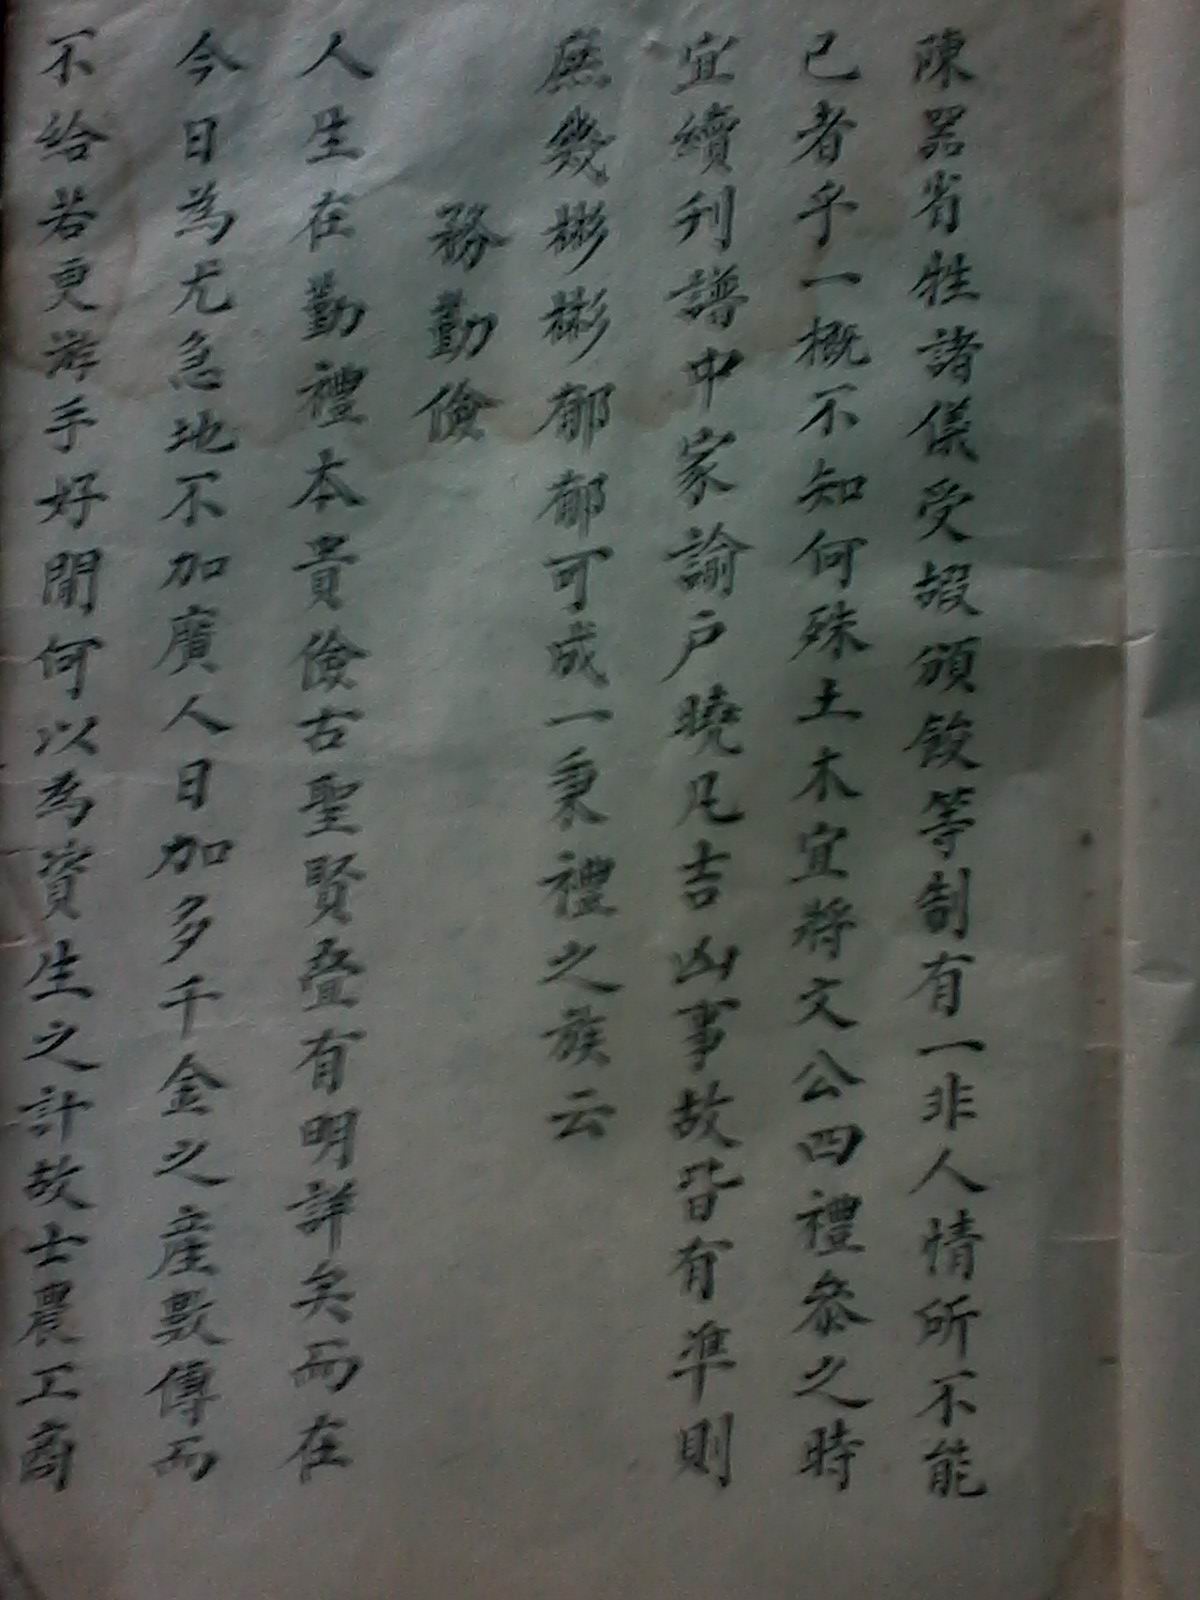 陳器省牲諸儀受嘏頒餕等制有一非人情所不能
已者乎一概不知何殊土木宜將文公四禮參之時
宜續刊譜中家諭户曉凡吉凶事故皆有準則
庶幾彬彬郁郁可成一秉禮之族云
務勤儉
人生在勤禮本貴儉古聖賢叠有明詳矣而在
今日為尤急地不加廣人日加多千金之產數傳而
不給若更游手好閒何以為資生之計故士農工商